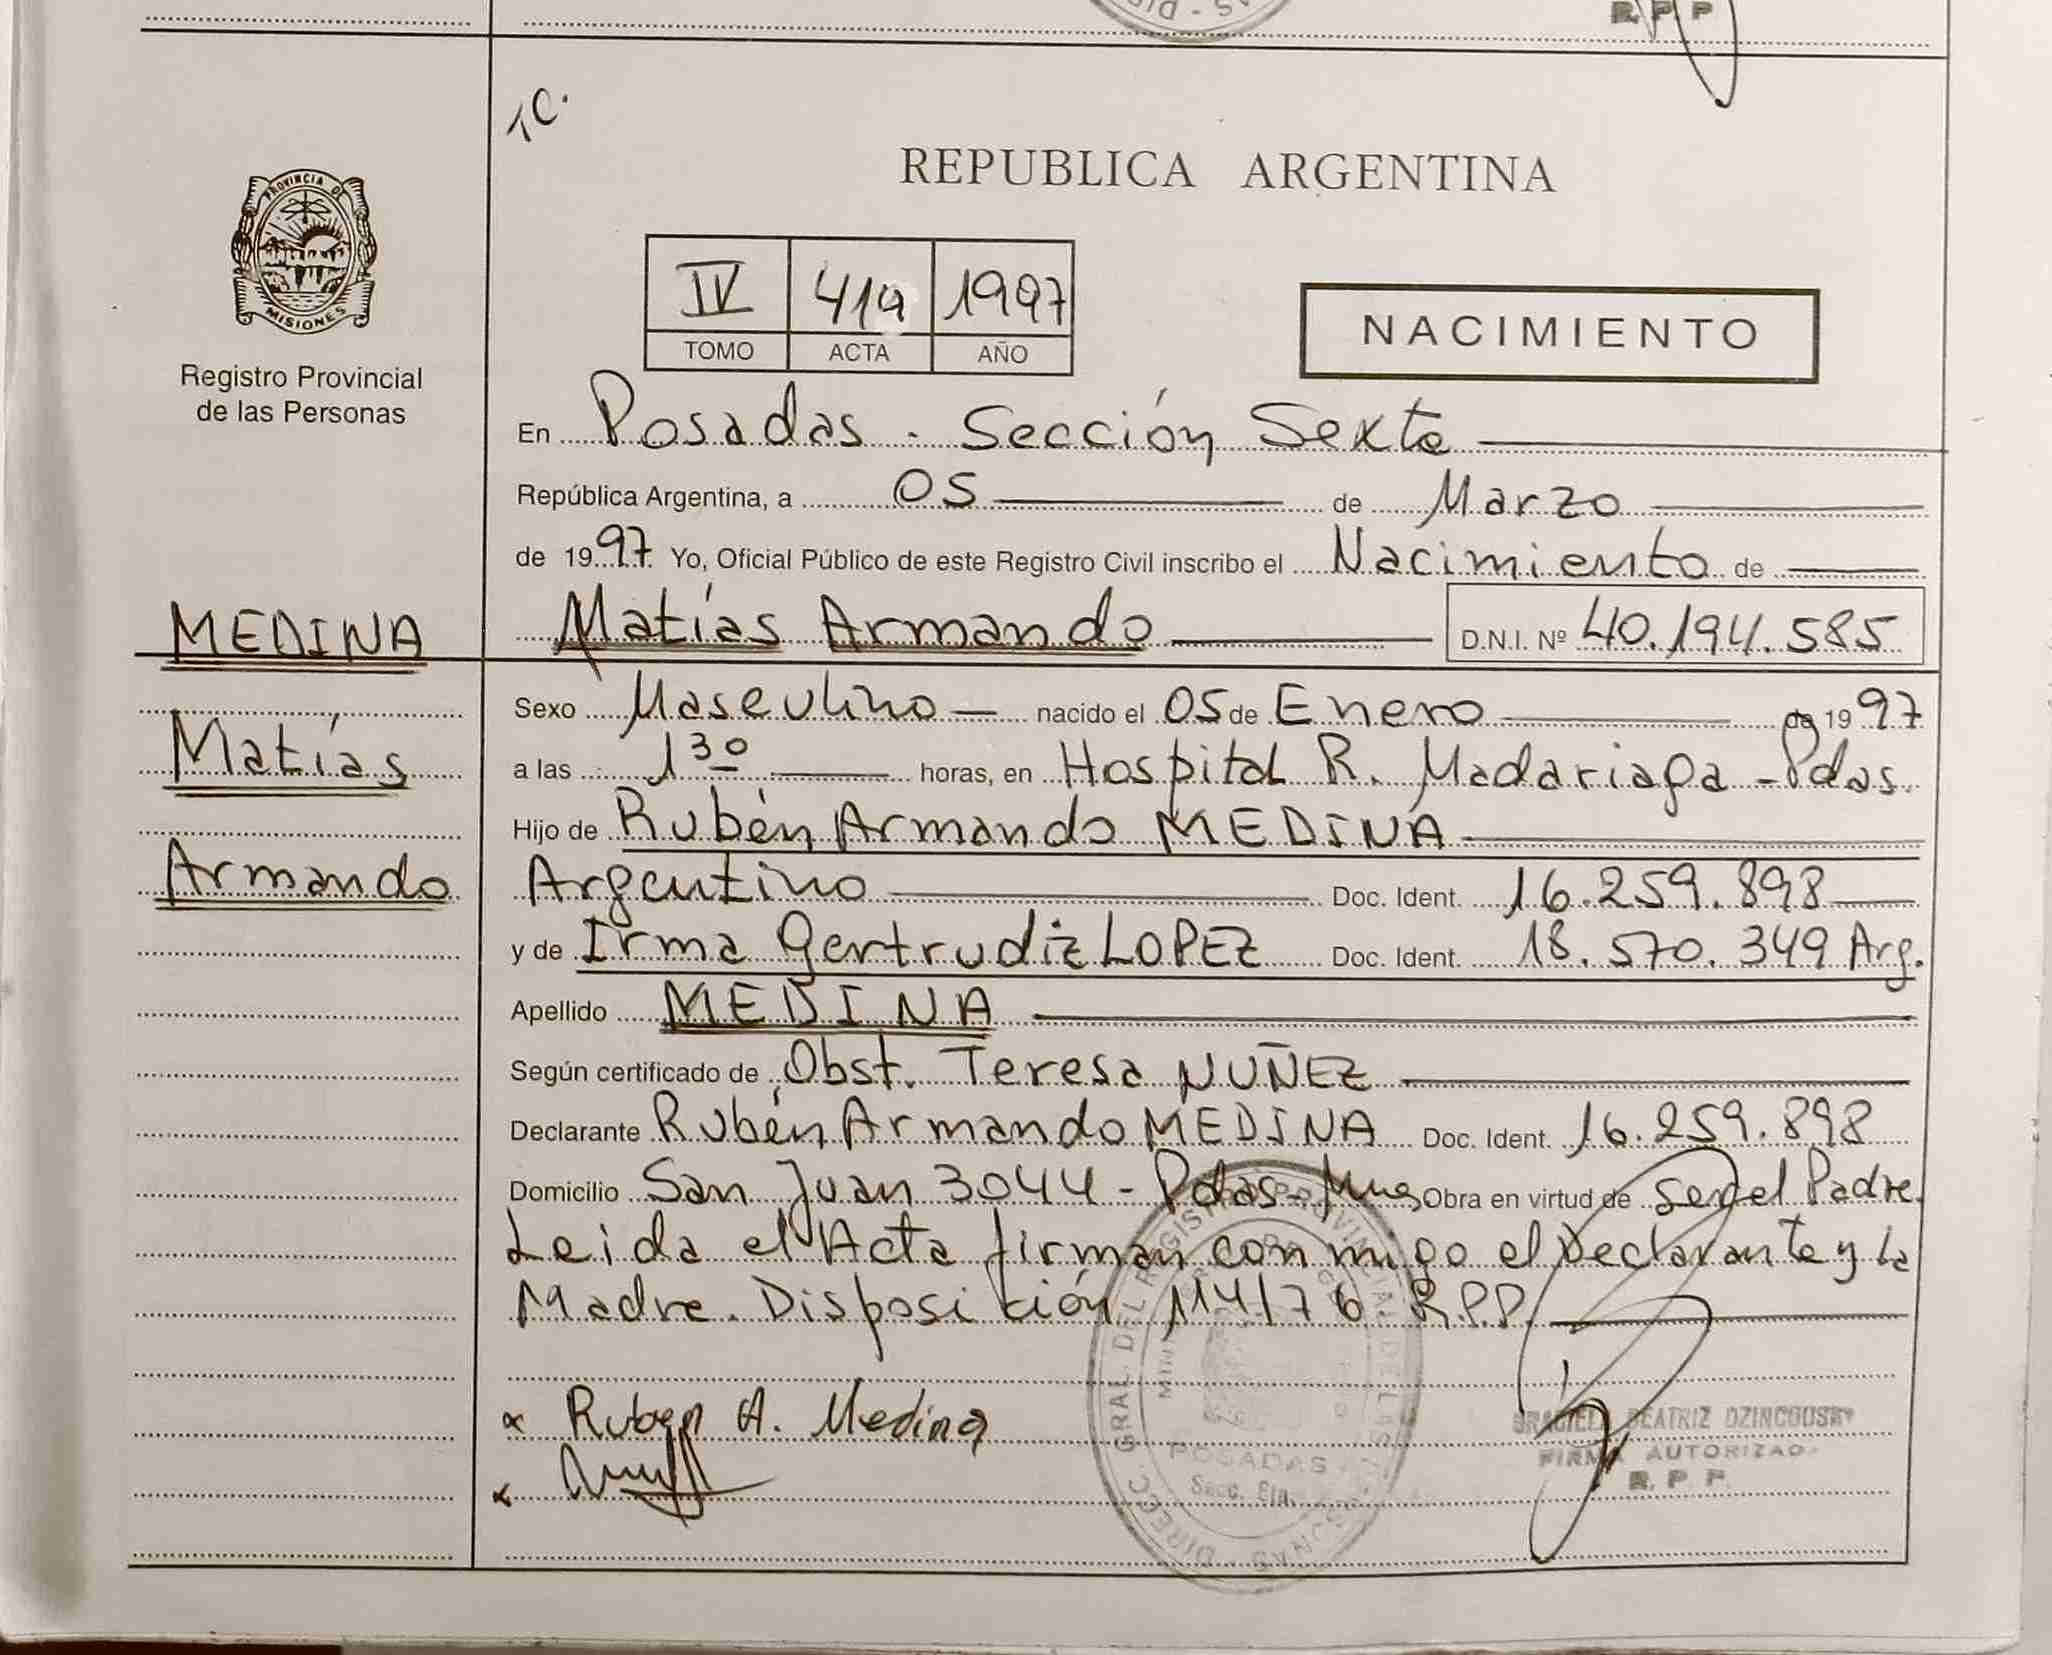 R. P. P
TC.
PROVINCIA DE
MISIONES
Registro Provincial
de las Personas
REPUBLICA ARGENTINA
IV 419 1997
TOMO ACTA AÑO
NACIMIENTO
En Posadas - Sección Sexta
República Argentina, a 05 de Marzo
de 1997 Yo, Oficial Público de este Registro Civil inscribo el Nacimiento de
MEDINA
Matías Armando D.N.I. Nº 40.194.585
Matías
Armando
Sexo Masculino nacido el 05 de Enero de 1997
a las 1 30 horas, en Hospital R. Madariaga - Pdas.
Hijo de Rubén Armando MEDINA
Argentino Doc. Ident. 16.259.898
y de Irma Gertrudiz LOPEZ Doc. Ident. 18.570.349 Arg.
Apellido MEDINA
Según certificado de Obst. Teresa NUÑEZ
Declarante Rubén Armando MEDINA Doc. Ident. 16.259.898
Domicilio San Juan 3044 - Pdas - Mnes Obra en virtud de ser el Padre.
Leida el Acta firman con migo el Declarante y la
Madre. Disposición 114/76 R.P.P.
Ruben A. Medina
DIREC. GRAL. DEL REGISTRO PROVINCIAL DE LAS PERSONAS
POSADAS
Secc. 6ta.
GRACIELA BEATRIZ DZINCOUSKY
FIRMA AUTORIZAD
R. P. P.